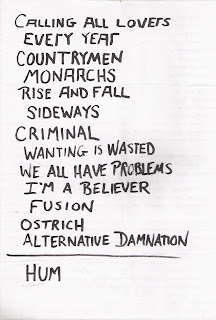 CALLING ALL LOVERS
EVERY YEAR
COUNTRYMEN
MONARCHS
RISE AND FALL
SIDEWAYS
CRIMINAL
WANTING IS WASTED
WE ALL HAVE PROBLEMS
I'M A BELIEVER
FUSION
OSTRICH
ALTERNATIVE DAMNATION
HUM